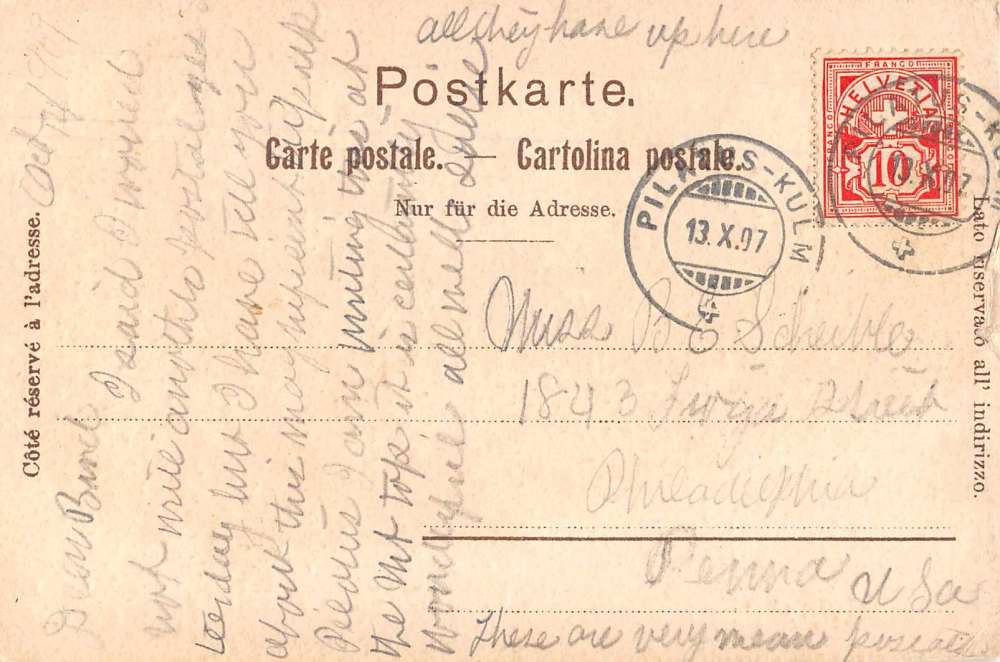 all they have up here
Postkarte.
Carte postale. — Cartolina postale.
Nur für die Adresse.
Côté réservé à l'adresse.
Lato riservato all' indirizzo.
FRANCO
HELVETIA
10
FRANCO
FRANCO
PILATUS-KULM
13. X. 07
PILATUS-KULM
13. X. 07
Miss B E Scheible
1843 Street
Philadelphia
Penna
U S a
These are very mean postals
Oct 14
Dear
I said I would
not write another postal
but I have
about this magnificent
I am writing this at
the Mt top it is certainly
wonderful all well